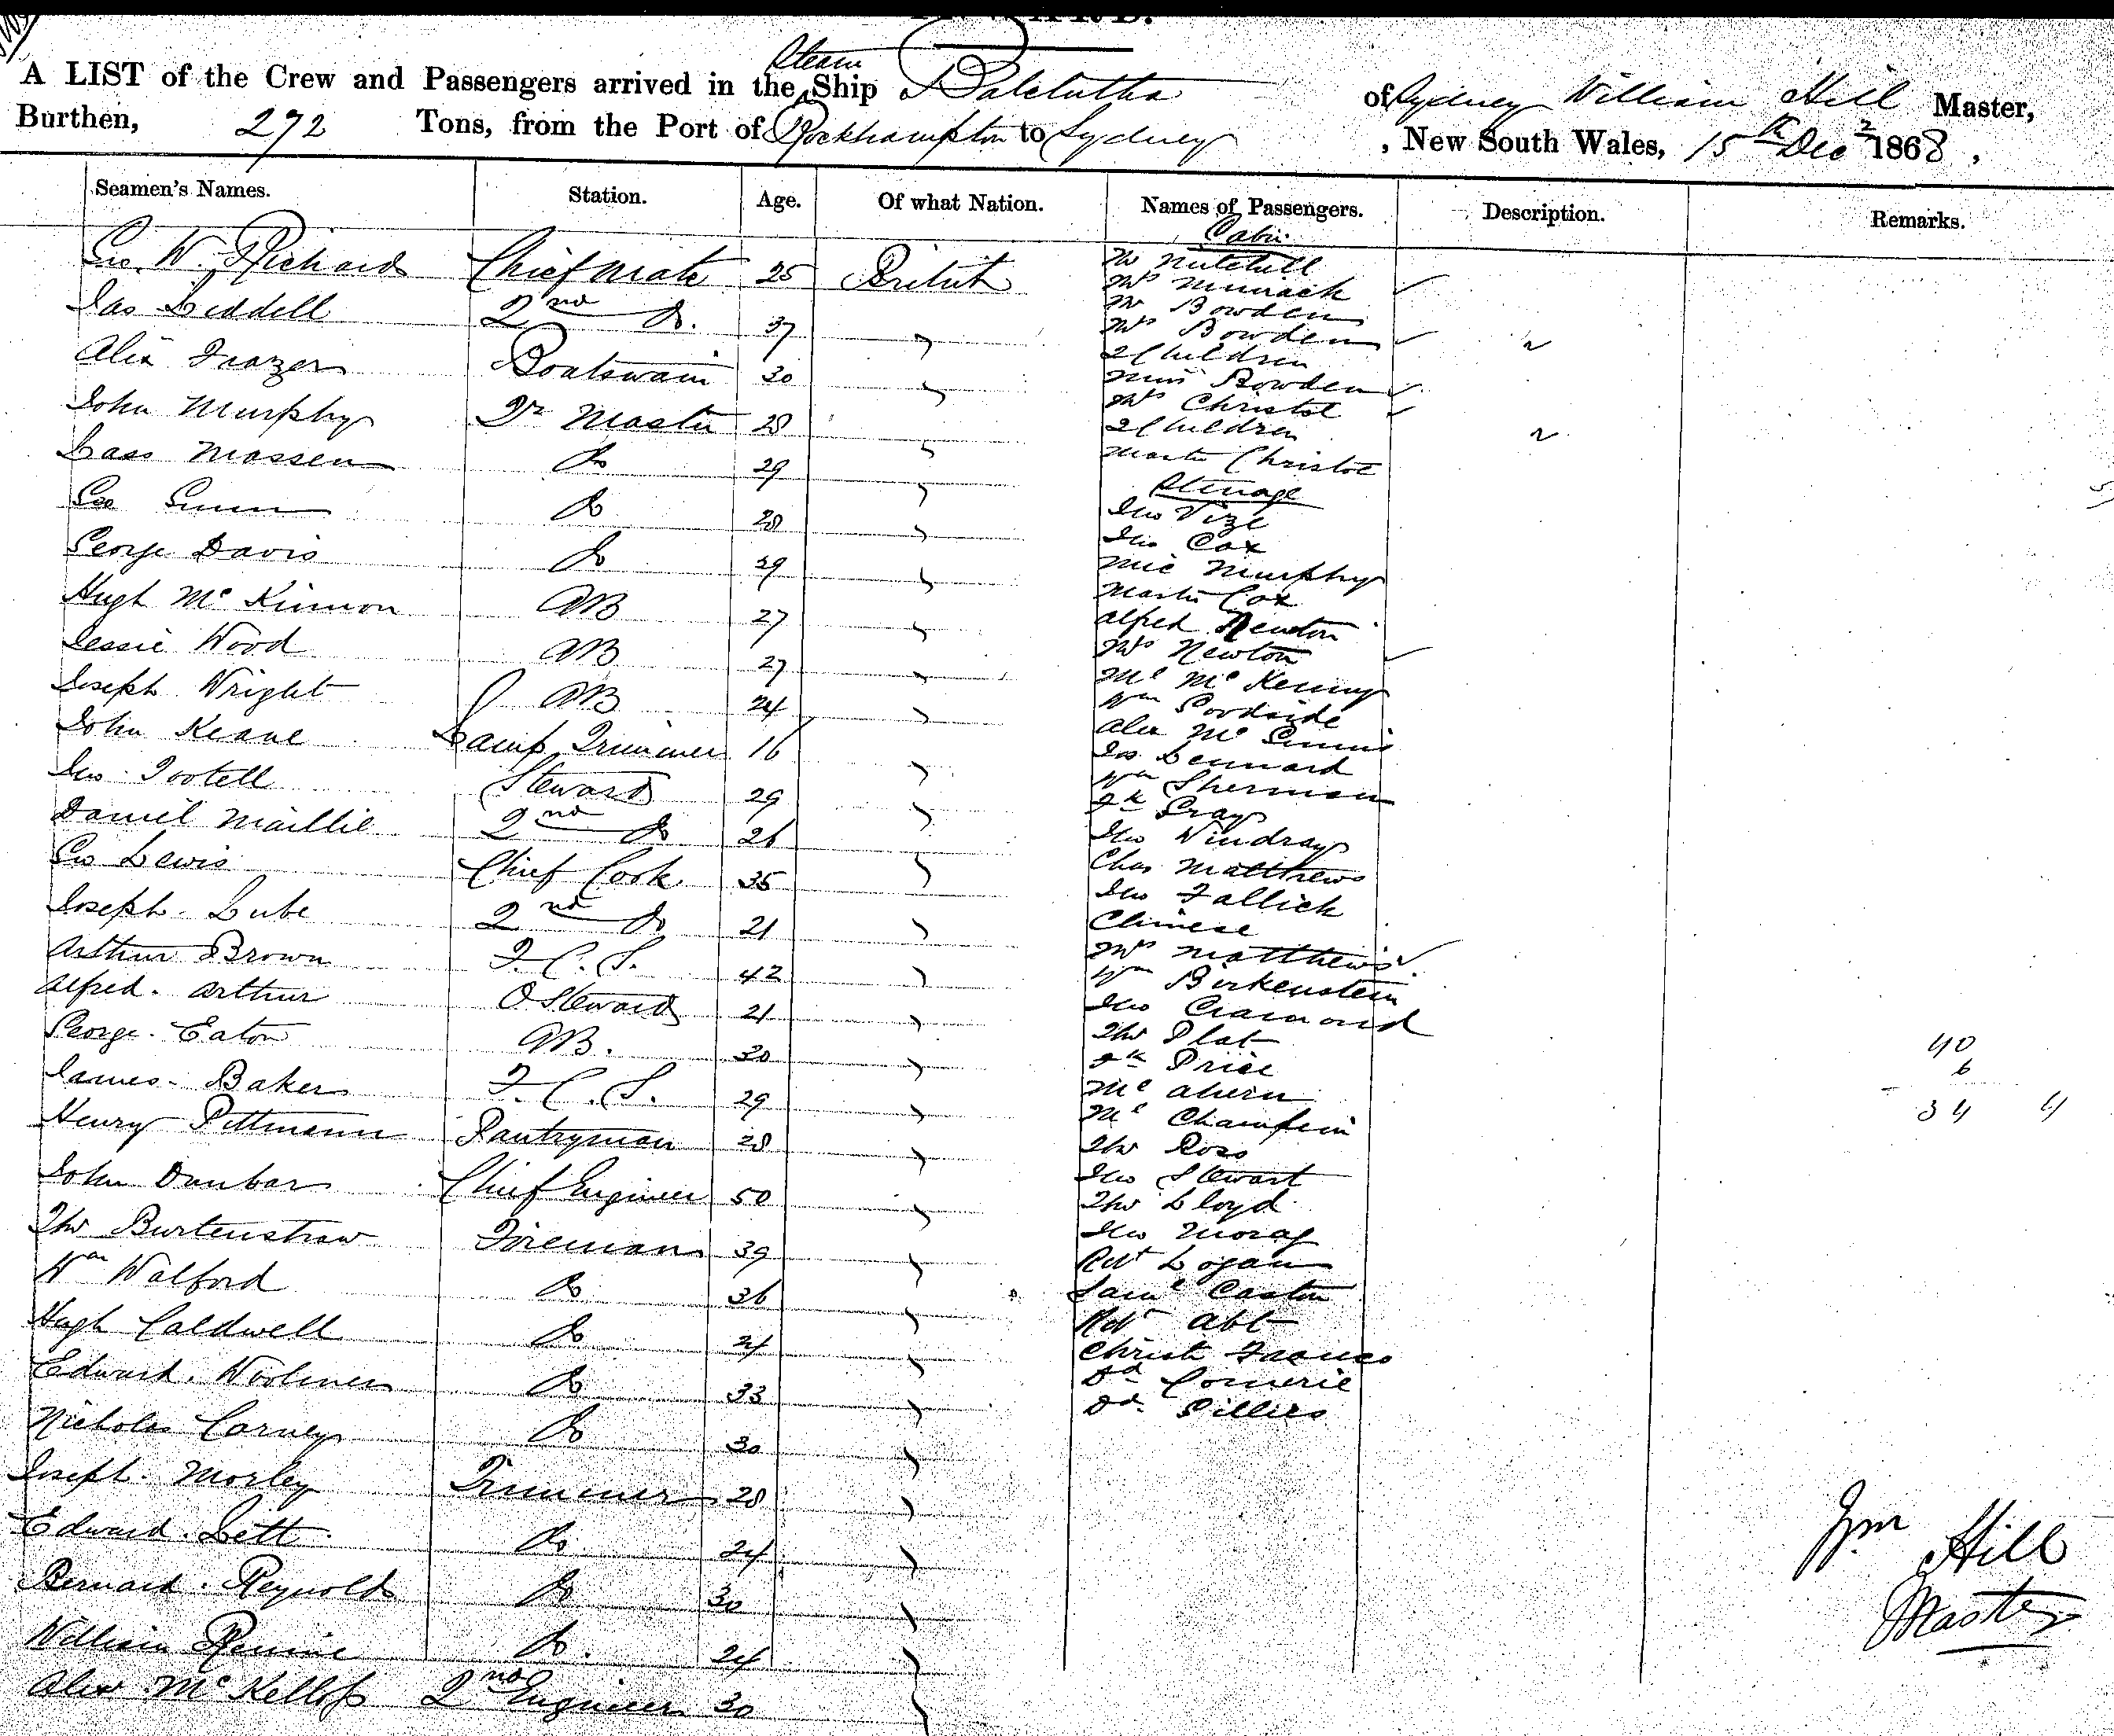 A LIST of the Crew and Passengers arrived in the Steam Ship Balclutha of Sydney William Hill Master,
Burthen, 272 Tons, from the Port of Rockhampton to Sydney, New South Wales, 15th Decr 1868,
Seamen's Names. Station. Age. Of what Nation. Names of Passengers. Description. Remarks.
Geo. W. Richards Chief Mate 25 British
Jas Liddell 2nd Do. 37 "
Alex Frazer Boatswain 30 "
John Murphy Qr Master 28 "
Lass Massen Do 29 "
Geo Gunn Do 28 "
George Davis Do 29 "
Hugh McKinnon AB 27 "
Jessie Wood AB 27 "
Joseph Wright AB 24 "
John Keane Lamp Trimmer 16 "
Jno Tootell Steward 29 "
Daniel Maillie 2nd Do 26 "
Geo Lewis Chief Cook 35 "
Joseph Lube 2nd Do 21 "
Arthur Brown F.C.S. 42 "
Alfred Arthur O Steward 21 "
George Eaton AB. 30 "
James Baker F.C.S. 29 "
Henry Pittmann Pantryman 28 "
John Dunbar Chief Engineer 50 "
Thos Burtenshaw Fireman 39 "
Wm Walford Do 36 "
Hugh Caldwell Do 24 "
Edward Woolmer Do 33 "
Nicholas Carney Do 30 "
Joseph Morley Trimmer 28 "
Edward Lett Do 24 "
Bernard Reynolds Do 30 "
William Rennie Do. 24 "
Alex McKellop 2nd Engineer 30 "
Cabin
Mr Mitchell
Mrs
Mr Bowden
Mrs Bowden
2 Children
Miss Bowden
Mrs Christoe
2 Children
Master Christoe
Steerage
Jno Vize
Jno Cox
Mic Murphy
Martin Cox
Alfred Newton
Mrs Newton
Ml McKenny
Wm Woodside
Alex McGinnis
Jas Lennard
Wm Sherman
Fk Gray
Jno Windray
Chas Matthews
Jno Fallick
Chinese
Mrs Matthews
Wm Birkenstein
Jno Cramond
Thos Plat
Fk Price
Ml Ahern
Ml Champion
Thos Ross
Jno Stewart
Thos Lloyd
Jno Moray
Robt Logan
Saml Caston
Robt Abt
Christ
Dd Comerie
Dd Gillies
40
6
34 4
Wm Hill
Master